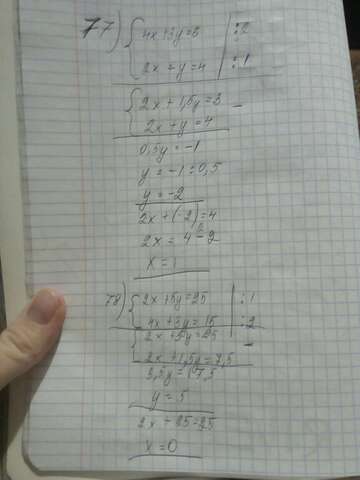 77) { 4x+3y=6 | :2
2x+y=4 | :1
{ 2x+1,5y=3 -
2x+y=4
0,5y=-1
y=-1:0,5
y=-2
2x+(-2)=4
x=1
78) { 2x+5y=25 | :1
4x+3y=15 | :2
{ 2x+5y=25 -
2x+1,5y=7,5
3,5y=17,5
y=5
2x+25=25
x=0